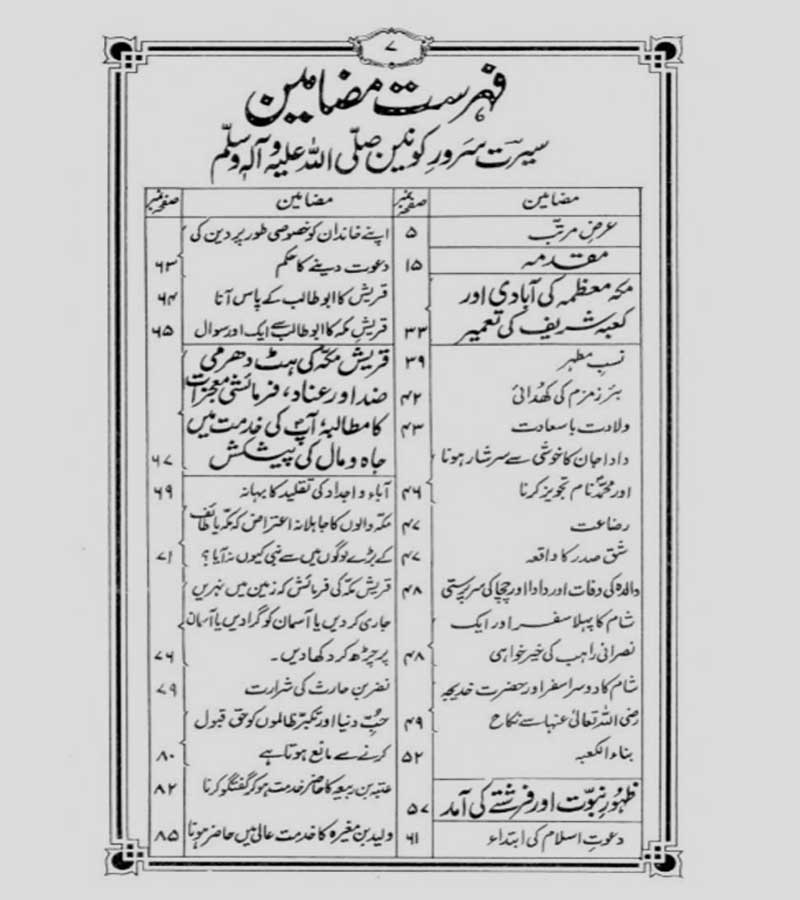 ۷
فہرست مضامین
سیرت سرور کونین صلی اللہ علیہ وآلہ وسلم
مضامین صفحہ نمبر
عرضِ مرتب ۵
مقدمہ ۱۵
مکہ معظمہ کی آبادی اور
کعبہ شریف کی تعمیر ۳۳
نسبِ مطہر ۳۹
بئر زمزم کی کھدائی ۴۲
ولادت باسعادت ۴۳
دادا جان کا خوشی سے سرشار ہونا
اور محمدؐ نام تجویز کرنا ۴۶
رضاعت ۴۷
شق صدر کا واقعہ ۴۷
والدہ کی وفات اور دادا اور چچا کی سرپرستی ۴۸
شام کا پہلا سفر اور ایک
نصرانی راہب کی خیر خواہی ۴۸
شام کا دوسرا سفر اور حضرت خدیجہ
رضی اللہ تعالیٰ عنہا سے نکاح ۴۹
بناء الکعبہ ۵۲
ظہورِ نبوت اور فرشتے کی آمد ۵۷
دعوتِ اسلام کی ابتداء ۶۱
مضامین صفحہ نمبر
اپنے خاندان کو خصوصی طور پر دین کی
دعوت دینے کا حکم ۶۳
قریش کا ابو طالب کے پاس آنا ۶۴
قریش مکہ کا ابو طالب سے ایک اور سوال ۶۵
قریش مکہ کی ہٹ دھرمی
ضد اور عناد، فرمائشی معجزات
کا مطالبہ آپؐ کی خدمت میں
جاہ و مال کی پیشکش ۶۷
آباء و اجداد کی تقلید کا بہانہ ۶۹
مکہ والوں کا جاہلانہ اعتراض کہ مکہ یا طائف
کے بڑے لوگوں میں سے نبی کیوں نہ آیا؟ ۷۱
قریش مکہ کی فرمائش کہ زمین میں نہریں
جاری کر دیں یا آسمان کو گرا دیں یا آسمان
پر چڑھ کر دکھا دیں۔ ۷۶
نضر بن حارث کی شرارت ۷۹
حبِّ دنیا اور تکبر ظالموں کو حق قبول
کرنے سے مانع ہوتا ہے ۸۰
عتبہ بن ربیعہ کا حاضر خدمت ہو کر گفتگو کرنا ۸۲
ولید بن مغیرہ کا خدمت عالی میں حاضر ہونا ۸۵